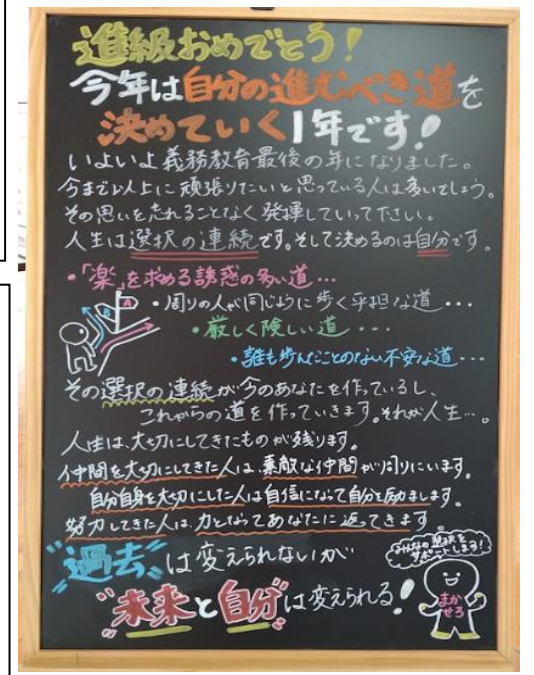 進級おめでとう!
今年は自分の進むべき道を
決めていく1年です!
いよいよ義務教育最後の年になりました。
今まで以上に頑張りたいと思っている人は多いでしょう。
その思いを忘れることなく発揮していって下さい。
人生は選択の連続です。そして決めるのは自分です。
・「楽」を求める誘惑の多い道…
・周りの人が同じように歩く平坦な道…
・厳しく険しい道…
・誰も歩んだことのない不安な道…
A
B
その選択の連続が今のあなたを作っているし、
これからの道を作っていきます。それが人生…。
人生は、大切にしてきたものが残ります。
仲間を大切にしてきた人は、素敵な仲間が周りにいます。
自分自身を大切にした人は自信になって自分を励まします。
努力してきた人は、力となってあなたに返ってきます
"過去"は変えられないが
"未来と自分"は変えられる!
みんなの選択を
サポートします!
まか
せろ